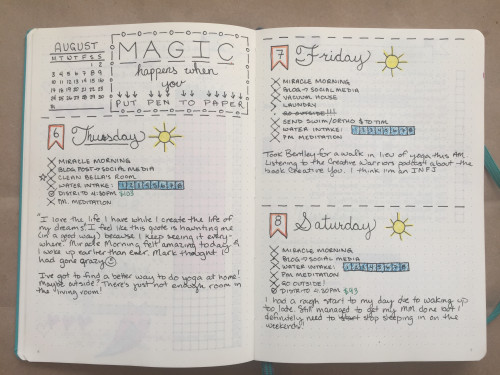 AUGUST
M T W T F S S
1 2
3 4 5 6 7 8 9
10 11 12 13 14 15 16
17 18 19 20 21 22 23
24 25 26 27 28 29 30
31
MAGIC
happens when
you
PUT PEN TO PAPER
6 Thursday
MIRACLE MORNING
BLOG POST → SOCIAL MEDIA
CLEAN BELLA'S ROOM
WATER INTAKE: 1 2 3 4 5 6 7 8
DISTRITO 4:30PM $103
PM. MEDITATION
"I love the life I have while I create the life of
my dreams." I feel like this quote is haunting me
(in a good way) because I keep seeing it every-
where. Miracle Morning felt amazing today. &
I woke up earlier than ever. Mark thought I
had gone crazy
I've got to find a better way to do yoga at home!
Maybe outside? There's just not enough room in
the living room!
7 Friday
MIRACLE MORNING
BLOG → SOCIAL MEDIA
VACUUM HOUSE
LAUNDRY
GO OUTSIDE!!!
SEND SWIM/ORTHO $ TO TIM
WATER INTAKE: 1 2 3 4 5 6 7 8
PM MEDITATION
Took Bentley for a walk in lieu of yoga this AM.
Listening to the Creative Warriors podcast about the
book Creative You. I think I'm an INFJ
8 Saturday
MIRACLE MORNING
BLOG → SOCIAL MEDIA
WATER INTAKE: 1 2 3 4 5 6 7 8
PM MEDITATION
GO OUTSIDE!
DISTRITO 4:30PM $93
I had a rough start to my day due to waking up
too late. Still managed to get my MM done but I
definitely need to start stop sleeping in on the
weekends!!